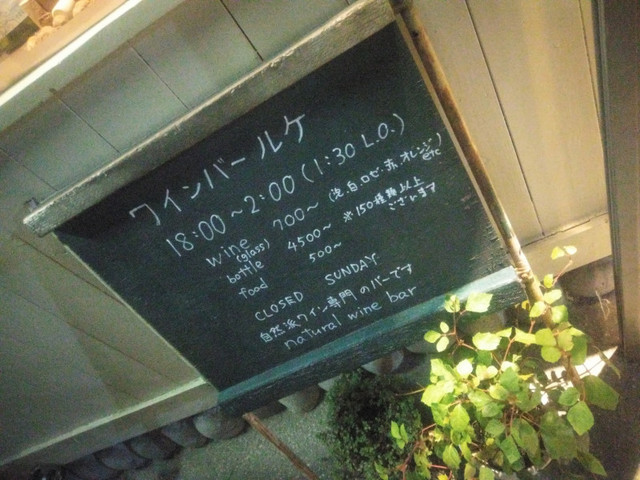 ワインバール ケ
18:00～2:00 (1:30 L.O.)
wine 700～ (泡.白.ロゼ.赤.オレンジ) etc
(glass)
bottle 4500～ ※150種類以上ございます
food 500～
CLOSED SUNDAY
自然派ワイン専門のバーです
natural wine bar